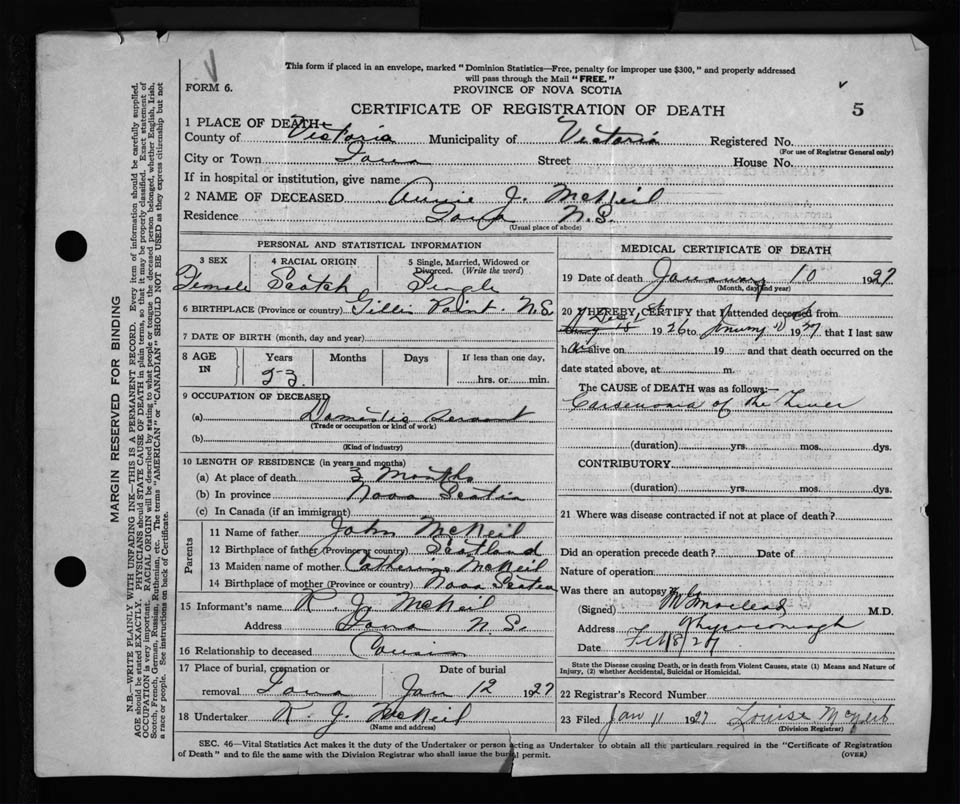 This form if placed in an envelope, marked "Dominion Statistics—Free, penalty for improper use $300," and properly addressed
will pass through the Mail "FREE."
FORM 6.
PROVINCE OF NOVA SCOTIA
CERTIFICATE OF REGISTRATION OF DEATH
5
1 PLACE OF DEATH—
County of Victoria Municipality of Victoria Registered No.
(For use of Registrar General only)
City or Town Iona Street House No.
If in hospital or institution, give name
2 NAME OF DECEASED Annie J. McNeil
Residence Iona N.S.
(Usual place of abode)
PERSONAL AND STATISTICAL INFORMATION
3 SEX 4 RACIAL ORIGIN 5 Single, Married, Widowed or
Divorced. (Write the word)
Female Scotch Single
6 BIRTHPLACE (Province or country) Gillis Point N.S.
7 DATE OF BIRTH (month, day and year)
8 AGE IN Years Months Days If less than one day,
hrs. or min.
9 OCCUPATION OF DECEASED
(a) Domestic Servant
(Trade or occupation or kind of work)
(b)
(Kind of industry)
10 LENGTH OF RESIDENCE (in years and months)
(a) At place of death 3 Months
(b) In province Nova Scotia
(c) In Canada (if an immigrant)
Parents
11 Name of father John McNeil
12 Birthplace of father (Province or country) Scotland
13 Maiden name of mother Catherine McNeil
14 Birthplace of mother (Province or country) Nova Scotia
15 Informant's name R. J. McNeil
Address Iona N.S.
16 Relationship to deceased Cousin
17 Place of burial, cremation or Date of burial
removal Iona Jan 12 1927
18 Undertaker R. J. McNeil
(Name and address)
MEDICAL CERTIFICATE OF DEATH
19 Date of death January 10 1927
(Month, day and year)
20 I HEREBY CERTIFY that I attended deceased from
1926 to 1927 that I last saw
h alive on 19 and that death occurred on the
date stated above, at m.
The CAUSE OF DEATH was as follows:
Carsenoma of the Liver
(duration) yrs. mos. dys.
CONTRIBUTORY
(duration) yrs. mos. dys.
21 Where was disease contracted if not at place of death?
Did an operation precede death? Date of
Nature of operation
Was there an autopsy
(Signed) Macleod M.D.
Address Whycocomagh
Date Feb 8 27
State the Disease causing Death, or in death from Violent Causes, state (1) Means and Nature of
Injury, (2) whether Accidental, Suicidal or Homicidal.
22 Registrar's Record Number
23 Filed Jan 11 1927 Louise McNeil
(Division Registrar)
SEC. 46—Vital Statistics Act makes it the duty of the Undertaker or person acting as Undertaker to obtain all the particulars required in the "Certificate of Registration
of Death" and to file the same with the Division Registrar who shall issue the burial permit.
(OVER)
MARGIN RESERVED FOR BINDING
N.B.—WRITE PLAINLY WITH UNFADING INK—THIS IS A PERMANENT RECORD. Every item of information should be carefully supplied.
AGE should be stated EXACTLY. PHYSICIANS should STATE CAUSE OF DEATH in plain terms, so that it may be properly classified. Exact statement of
OCCUPATION is very important. RACIAL ORIGIN will be described by stating to what people or tongue the deceased person belonged, whether English, Irish,
Scotch, French, German, Russian, Ruthenian, etc. The terms "AMERICAN" or "CANADIAN" SHOULD NOT BE USED as they express citizenship but not
a race or people. See instructions on back of Certificate.